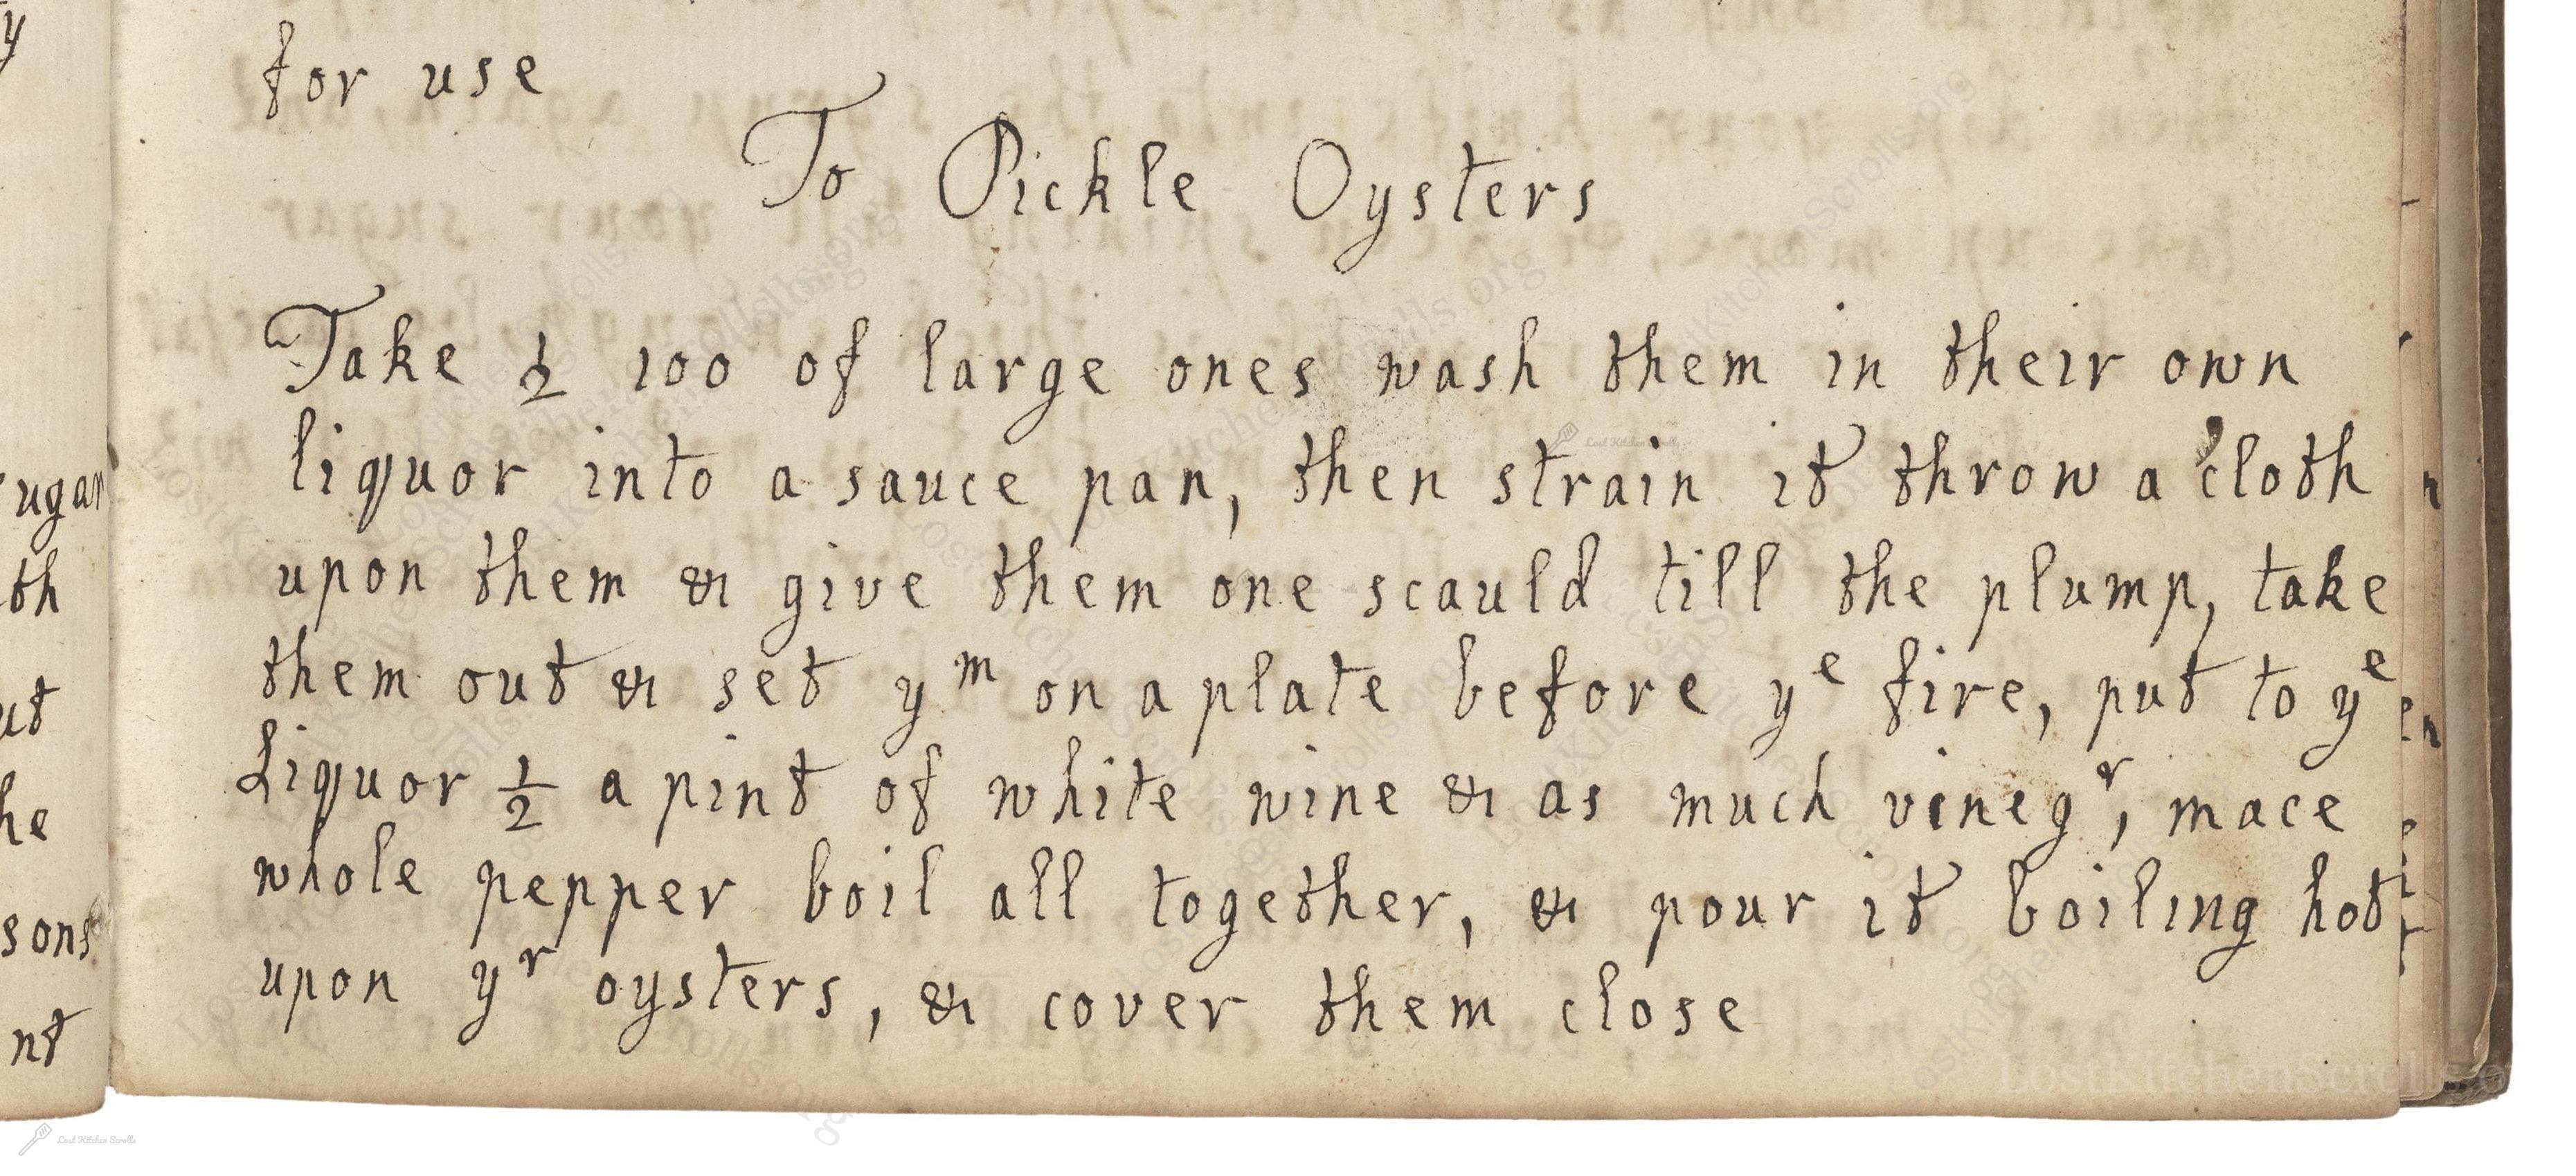 for use
To Pickle Oysters
Take ½ 100 of large ones wash them in their own
liquor into a sauce pan, then strain it throw a cloth
upon them & give them one scauld till the plump, take
them out & set yᵐ on a plate before yᵉ fire, put to yᵉ
Liquor ½ a pint of white wine & as much vinegʳ, mace
whole pepper boil all together, & pour it boiling hot
upon yʳ oysters, & cover them close
Lost Kitchen Scrolls